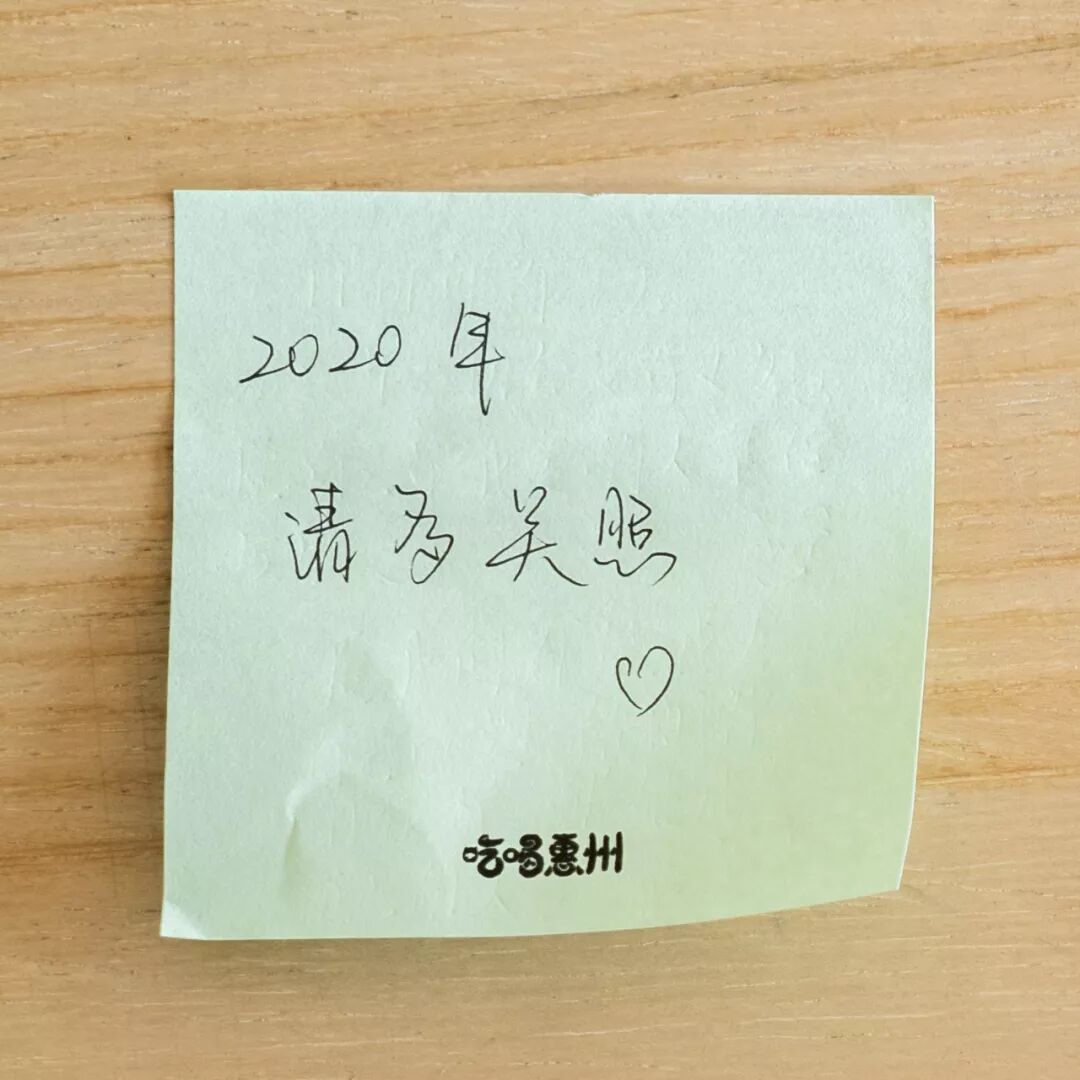 2020年
请多关照
♡
吃喝惠州